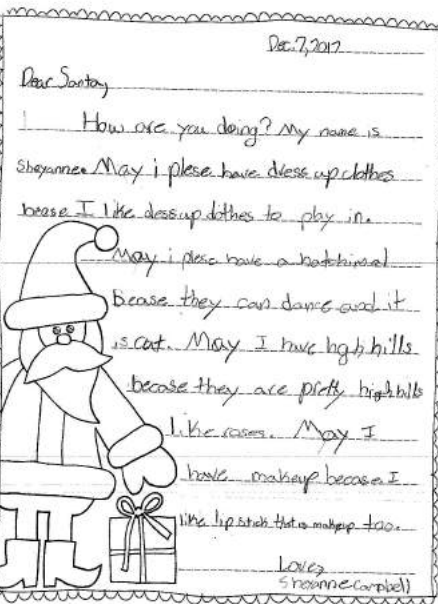 Dec. 7, 2017
Dear Santa,
How are you doing? My name is
Sheyanne. May i plese have dress up clothes
becase I like dess up clothes to play in.
May i plese have a hatchimal
becase they can dance and it
is cut. May I have hgh hills
becose they are pretty high hills
like roses. May I
have makeup becose I
like lip stick that is makeup too.
Love,
Sheyanne Campbell